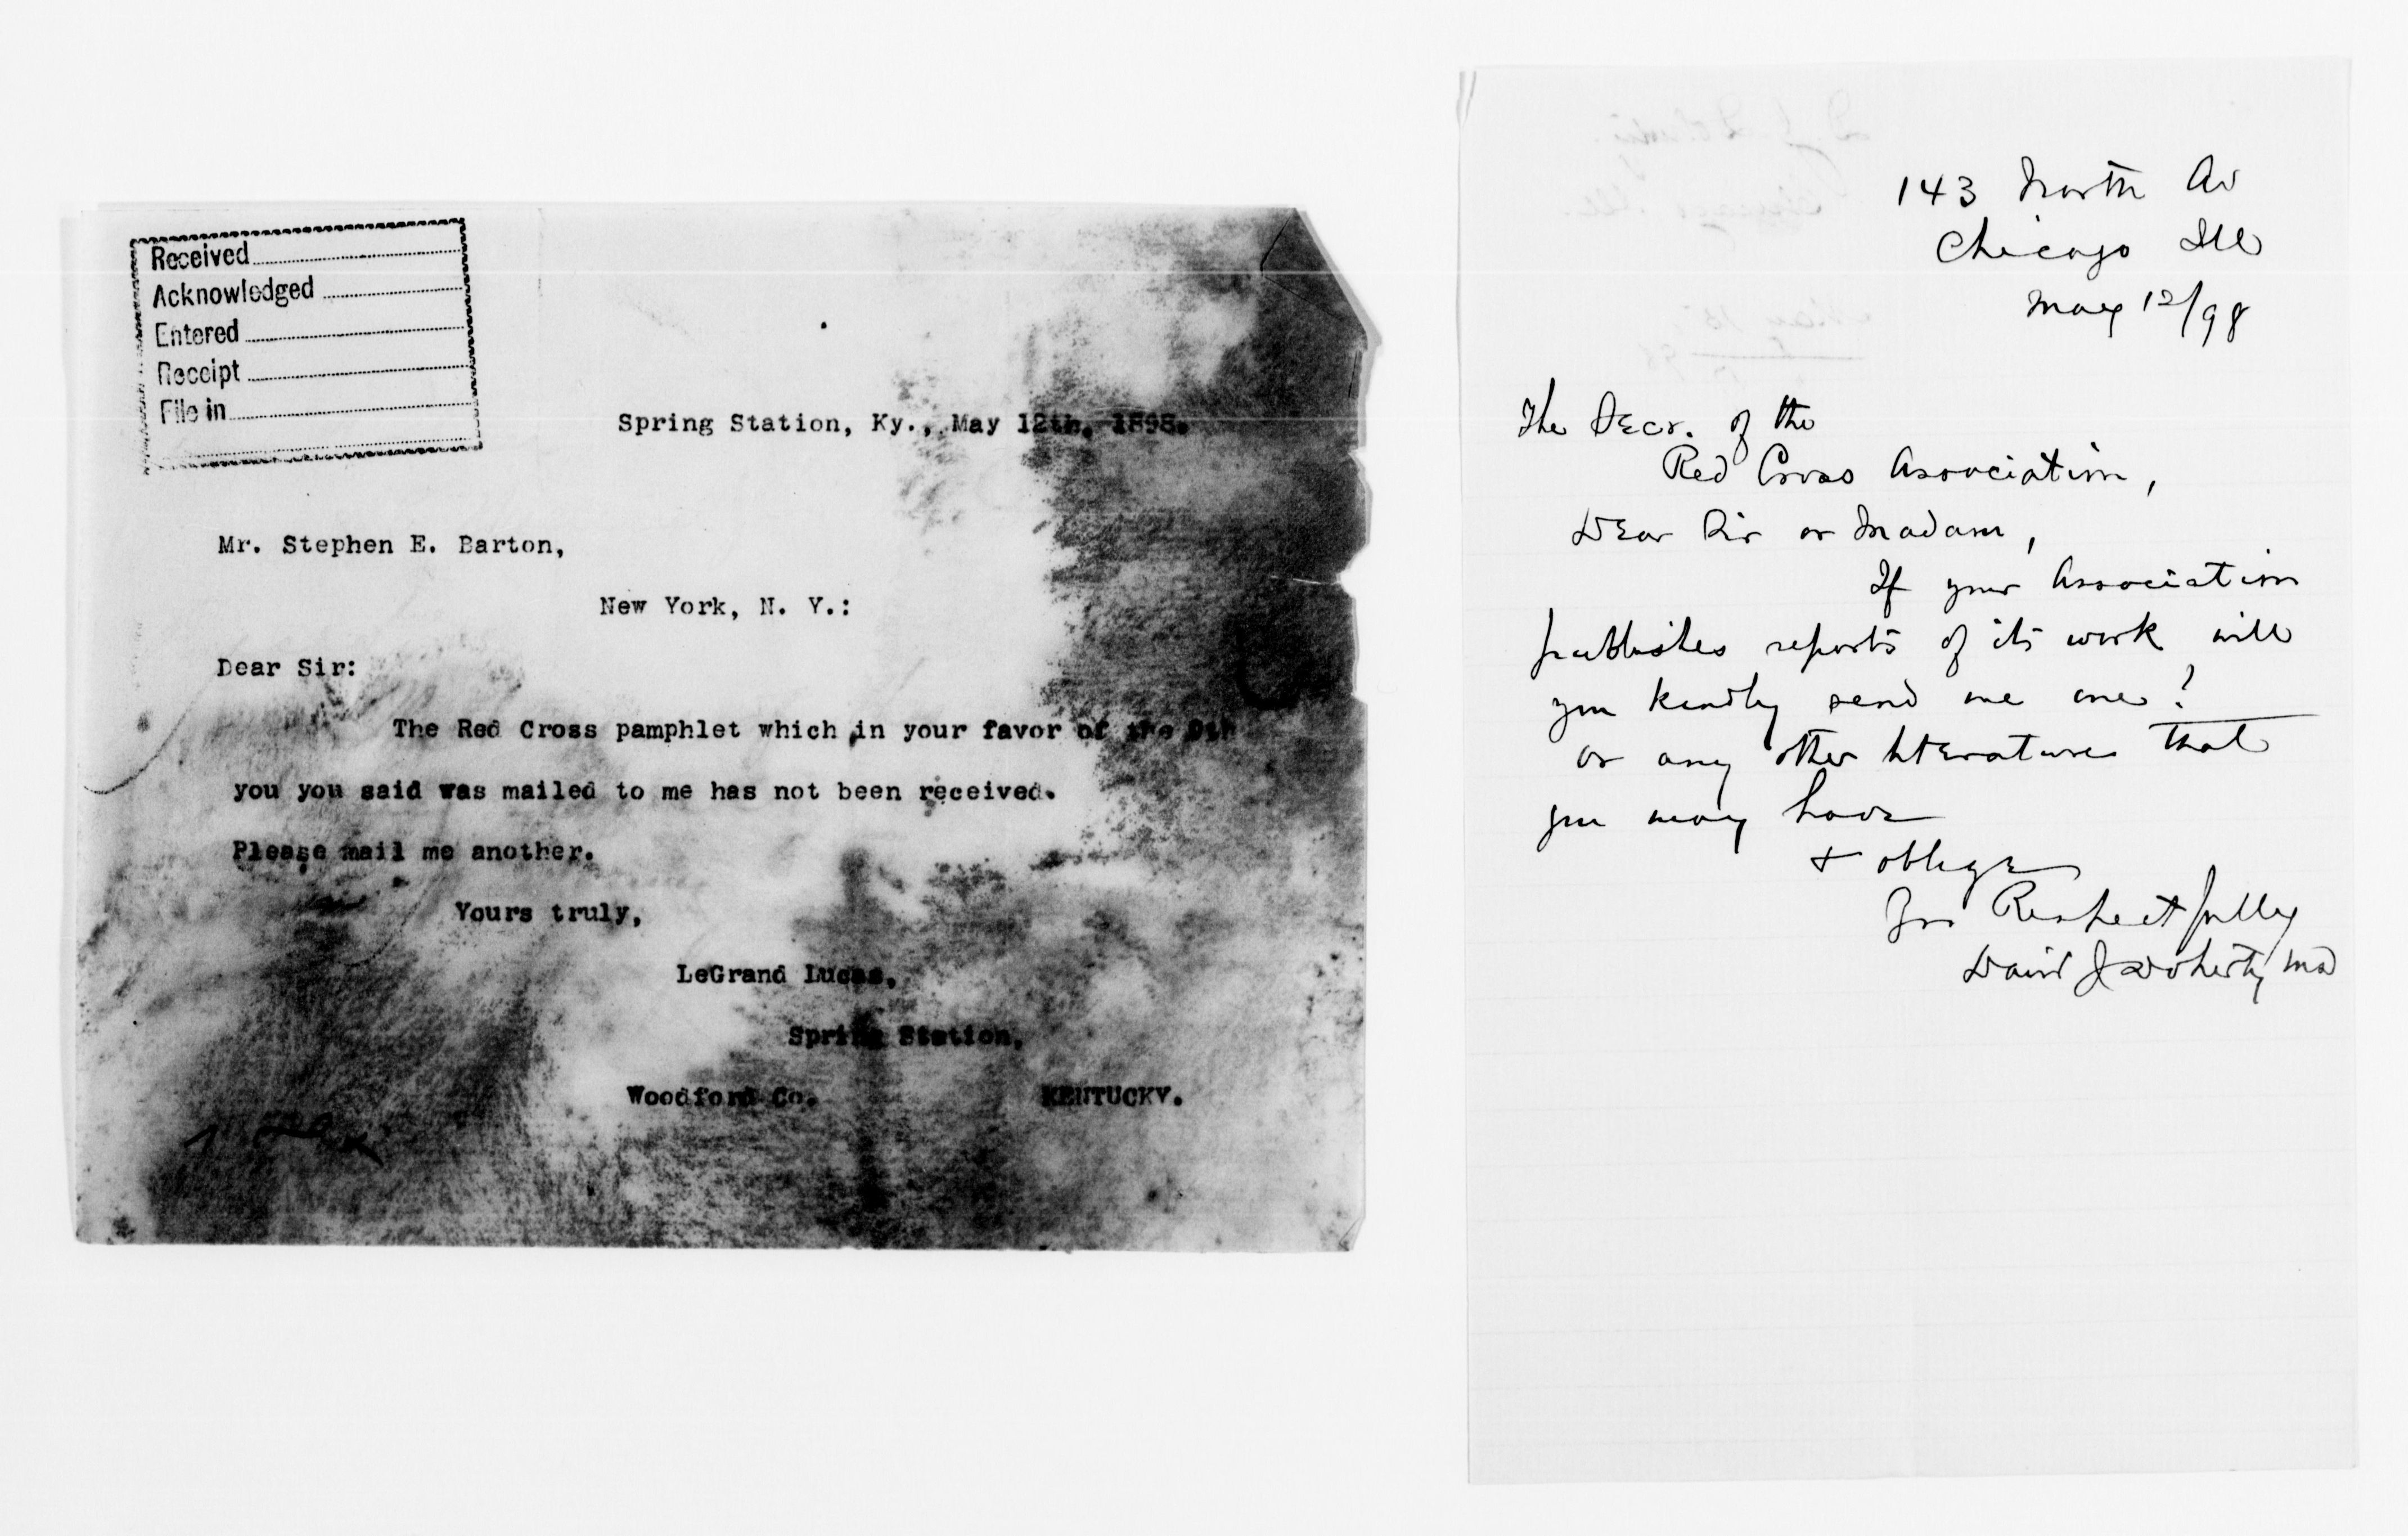 Received
Acknowledged
Entered
Receipt
File in
Spring Station, Ky., May 12th, 1898.
Mr. Stephen E. Barton,
New York, N. Y.:
Dear Sir:
The Red Cross pamphlet which in your favor of the 9th
you you said was mailed to me has not been received.
Please mail me another.
Yours truly,
LeGrand Lucas,
Spring Station,
Woodford Co. KENTUCKY.
143 North Av
Chicago Ill
May 12/98
The Secr. of the
Red Cross Association,
Dear Sir or Madam,
If your Association
publishes reports of its work will
you kindly send me one?
or any other literature that
you may have
& oblige
Yrs Respectfully
David J Doherty MD